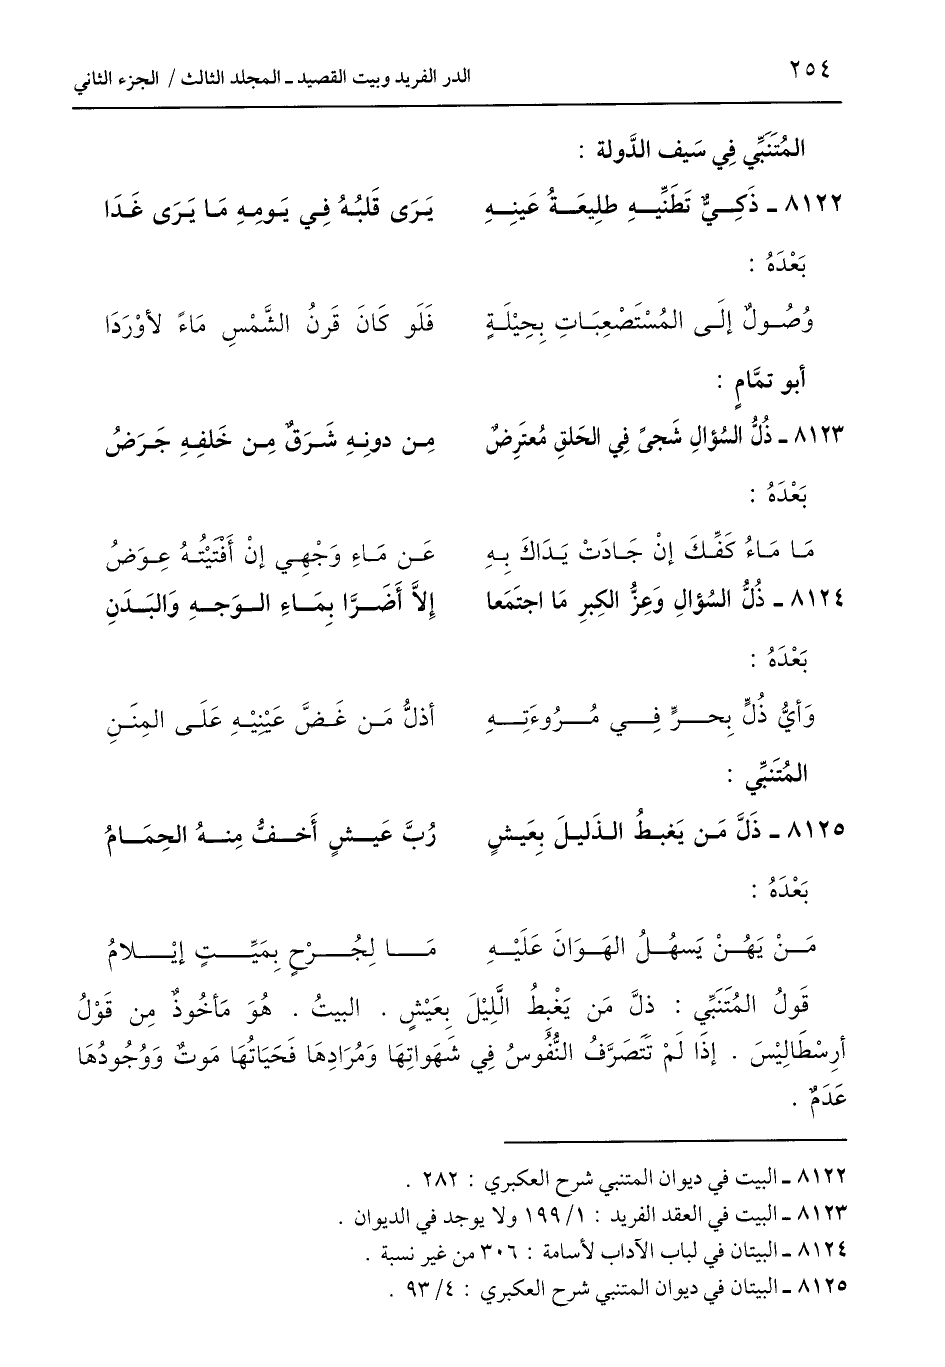 ٢٥٤
الدر الفريد وبيت القصيد ـ المجلد الثالث / الجزء الثاني
المُتَنَبِّي فِي سَيف الدَّولة :
٨١٢٢ ـ ذَكِيٌّ تَظَنِّيهِ طلِيعَةُ عَينِهِ يَرَى قَلبُهُ فِي يَومِهِ مَا يَرَى غَدَا
بَعْدَهُ :
وُصُولٌ إلَى المُسْتَصْعِبَاتِ بِحِيْلَةٍ فَلَو كَانَ قَرنُ الشَّمْسِ مَاءً لأوْرَدَا
أبو تمَّامٍ :
٨١٢٣ ـ ذُلُّ السُؤالِ شَجىً فِي الحَلقِ مُعتَرِضٌ مِن دونِهِ شَرَقٌ مِن خَلفِهِ جَرَضُ
بَعْدَهُ :
مَا مَاءُ كَفِّكَ إنْ جَادَتْ يَدَاكَ بِهِ عَن مَاءِ وَجْهِي إنْ أَفْنَيْتُهُ عِوَضُ
٨١٢٤ ـ ذُلُّ السُؤالِ وَعِزُّ الكِبرِ مَا اجتَمَعا إلاَّ أَضَرَّا بِمَاءِ الوَجهِ وَالبَدَنِ
بَعْدَهُ :
وَأيُّ ذُلٍّ بِحرٍّ فِي مُرُوءَتِهِ أذلُّ مَن غَضَّ عَيْنِيْهِ عَلَى المِنَنِ
المُتَنبِّي :
٨١٢٥ ـ ذَلَّ مَن يَغبِطُ الذَليلَ بِعَيشٍ رُبَّ عَيشٍ أَخفُّ مِنهُ الحِمَامُ
بَعْدَهُ :
مَنْ يَهُنْ يَسهُلُ الهَوَانَ عَلَيْهِ مَا لِجُرْحٍ بِمَيِّتٍ إيْلامُ
قَولُ المُتَنَبِّي : ذلَّ مَن يَغْبِطُ الَّلِيْلَ بِعَيْشٍ . البيتُ . هُوَ مَأخُوذٌ مِن قَوْلُ
أرِسْطَالِيْسَ . إذَا لَمْ تَتَصَرَّفُ النُّفُوسُ فِي شَهَواتِهَا وَمُرَادِهَا فَحَيَاتُهَا مَوتٌ وَوُجُودُهَا
عَدَمٌ .
٨١٢٢ ـ البيت في ديوان المتنبي شرح العكبري : ٢٨٢ .
٨١٢٣ ـ البيت في العقد الفريد : ١/ ١٩٩ ولا يوجد في الديوان .
٨١٢٤ ـ البيتان في لباب الآداب لأسامة : ٣٠٦ من غير نسبة .
٨١٢٥ ـ البيتان في ديوان المتنبي شرح العكبري : ٤/ ٩٣ .